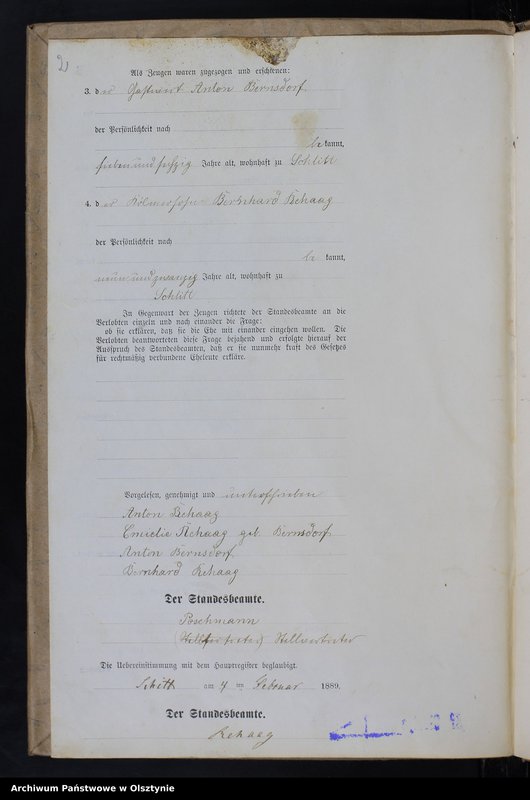 2
Als Zeugen waren zugezogen und erschienen:
3. der Gastwirt Anton Bernsdorf
der Persönlichkeit nach
be kannt,
sieben und sechzig Jahre alt, wohnhaft zu Schlitt
4. der Kölmersohn Bernhard Rehaag
der Persönlichkeit nach
be kannt,
neun und zwanzig Jahre alt, wohnhaft zu
Schlitt
In Gegenwart der Zeugen richtete der Standesbeamte an die
Verlobten einzeln und nach einander die Frage:
ob sie erklären, daß sie die Ehe mit einander eingehen wollen. Die
Verlobten beantworteten diese Frage bejahend und erfolgte hierauf der
Ausspruch des Standesbeamten, daß er sie nunmehr kraft des Gesetzes
für rechtmäßig verbundene Eheleute erkläre.
Vorgelesen, genehmigt und unterschrieben
Anton Rehaag
Emielie Rehaag geb. Bernsdorf
Anton Bernsdorf
Bernhard Rehaag
Der Standesbeamte.
Poschmann
Stellvertreter
Die Uebereinstimmung mit dem Hauptregister beglaubigt.
Schlitt am 4 ten Februar 1889.
Der Standesbeamte.
Rehaag
Archiwum Państwowe w Olsztynie